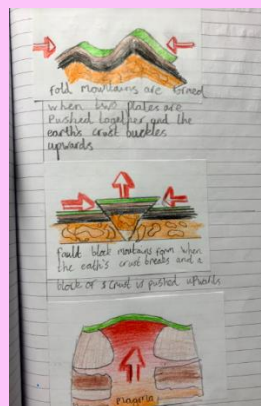 fold mountains are formed
when two plates are
Pushed together, and the
earth's crust buckles
upwards
fault block moutains form when
the earth's crust breaks and a
block of s crust is pushed upwards
magma